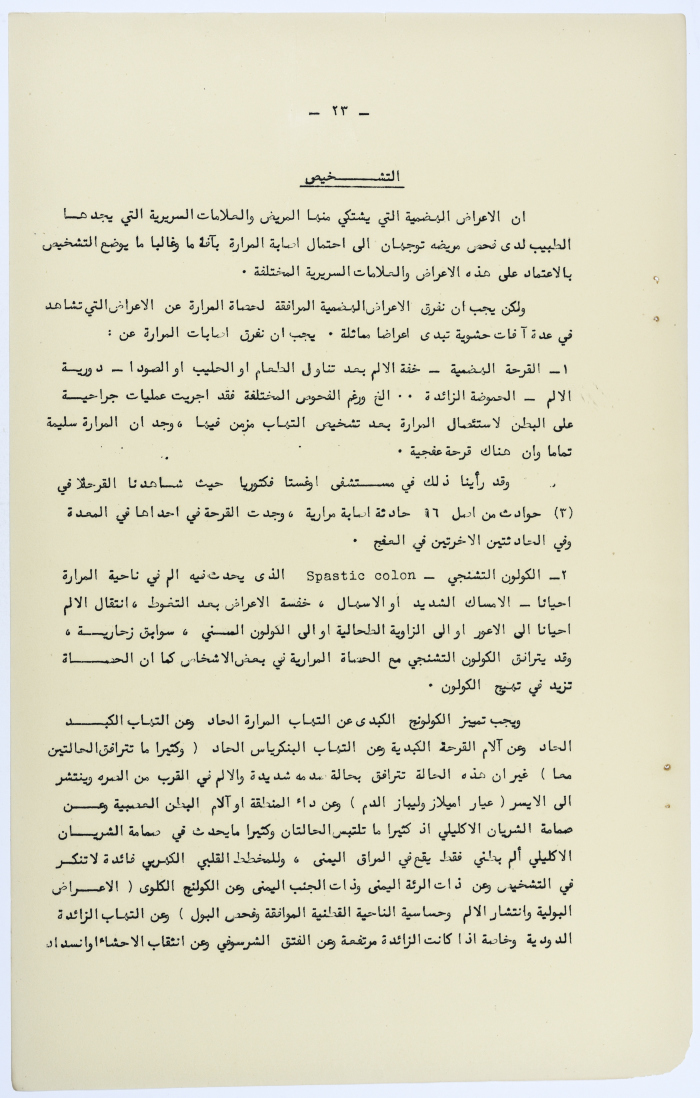 - ٢٣ -
التشـــخيص
ان الاعراض الهضمية التي يشتكي منها المريض والعلامات السريرية التي يجدهـا
الطبيب لدى فحص مريضه توجهان الى احتمال اصابة المرارة بآفة ما وغالبا ما يوضع التشخيص
بالاعتماد على هذه الاعراض والعلامات السريرية المختلفة ٠
ولكن يجب ان نفرق الاعراض الهضمية المرافقة لحصاة المرارة عن الاعراض التي تشاهد
في عدة آفات حشوية تبدى اعراضا مماثلة ٠ يجب ان نفرق اصابات المرارة عن :
١- القرحة الهضمية - خفة الالم بعد تناول الطعام او الحليب او الصودا - دوريـة
الالم - الحموضة الزائدة ٠٠ الخ ورغم الفحوص المختلفة فقد اجريت عمليات جراحيـة
على البطن لاستئصال المرارة بعد تشخيص التهاب مزمن فيها ، وجد ان المرارة سليمة
تماما وان هناك قرحة عفجية ٠
وقد رأينا ذلك في مستشفى اوغستا فكتوريا حيث شـاهدنا القرحة في
(٣) حوادث من اصل ٩٦ حادثة اصابة مرارية ، وجدت القرحة في احداها في المعدة
وفي الحادثتين الاخرتين في العفج ٠
٢- الكولون التشنجي - Spastic colon الذى يحدث فيه الم في ناحية المرارة
احيانا - الامساك الشديد او الاسهال ، خفسة الاعراض بعد التغوط ، انتقال الالم
احيانا الى الاعور او الى الزاوية الطحالية او الى الكولون السيني ، سوابق زحاريـة ،
وقد يترافق الكولون التشنجي مع الحصاة المرارية في بعض الاشخاص كما ان الحصــاة
تزيد في تهيج الكولون ٠
ويجب تمييز الكولونج الكبدى عن التهاب المرارة الحاد وعن التهاب الكبـد
الحاد وعن آلام القرحة الكبدية وعن التهاب البنكرياس الحاد ( وكثيرا ما تترافق الحالتين
معا ) غير ان هذه الحالة تترافق بحالة صدمه شديدة والالم في القرب من السره وينتشر
الى الايسر ( عيار اميلاز وليباز الدم ) وعن داء المنطقة او آلام البطن العصبية وعـن
صمامة الشريان الاكليلي اذ كثيرا ما تلتبس الحالتان وكثيرا مايحدث في صمامة الشريـان
الاكليلي ألم بطني فقط يقع في المراق اليمنى ، وللمخطط القلبي الكهربي فائدة لاتنكر
في التشخيص وعن ذات الرئة اليمنى وذات الجنب اليمنى وعن الكولنج الكلوى ( الاعـراض
البولية وانتشار الالم وحساسية الناحية القطنية الموافقة وفحص البول ) وعن التهاب الزائدة
الدودية وخاصة اذا كانت الزائدة مرتفعة وعن الفتق الشرسوفي وعن انثقاب الاحشاء او انسداد